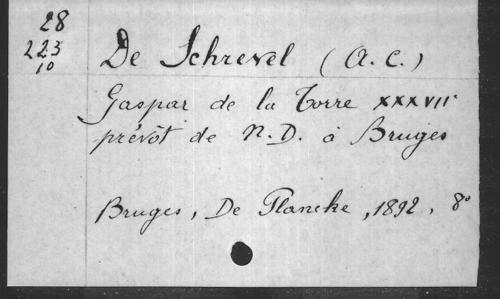 28
223
10
De Schrevel (A. C.)
Gaspar de la Torre XXXVIIᵉ
prévôt de N. D. à Bruges
Bruges, De Plancke, 1892, 8°